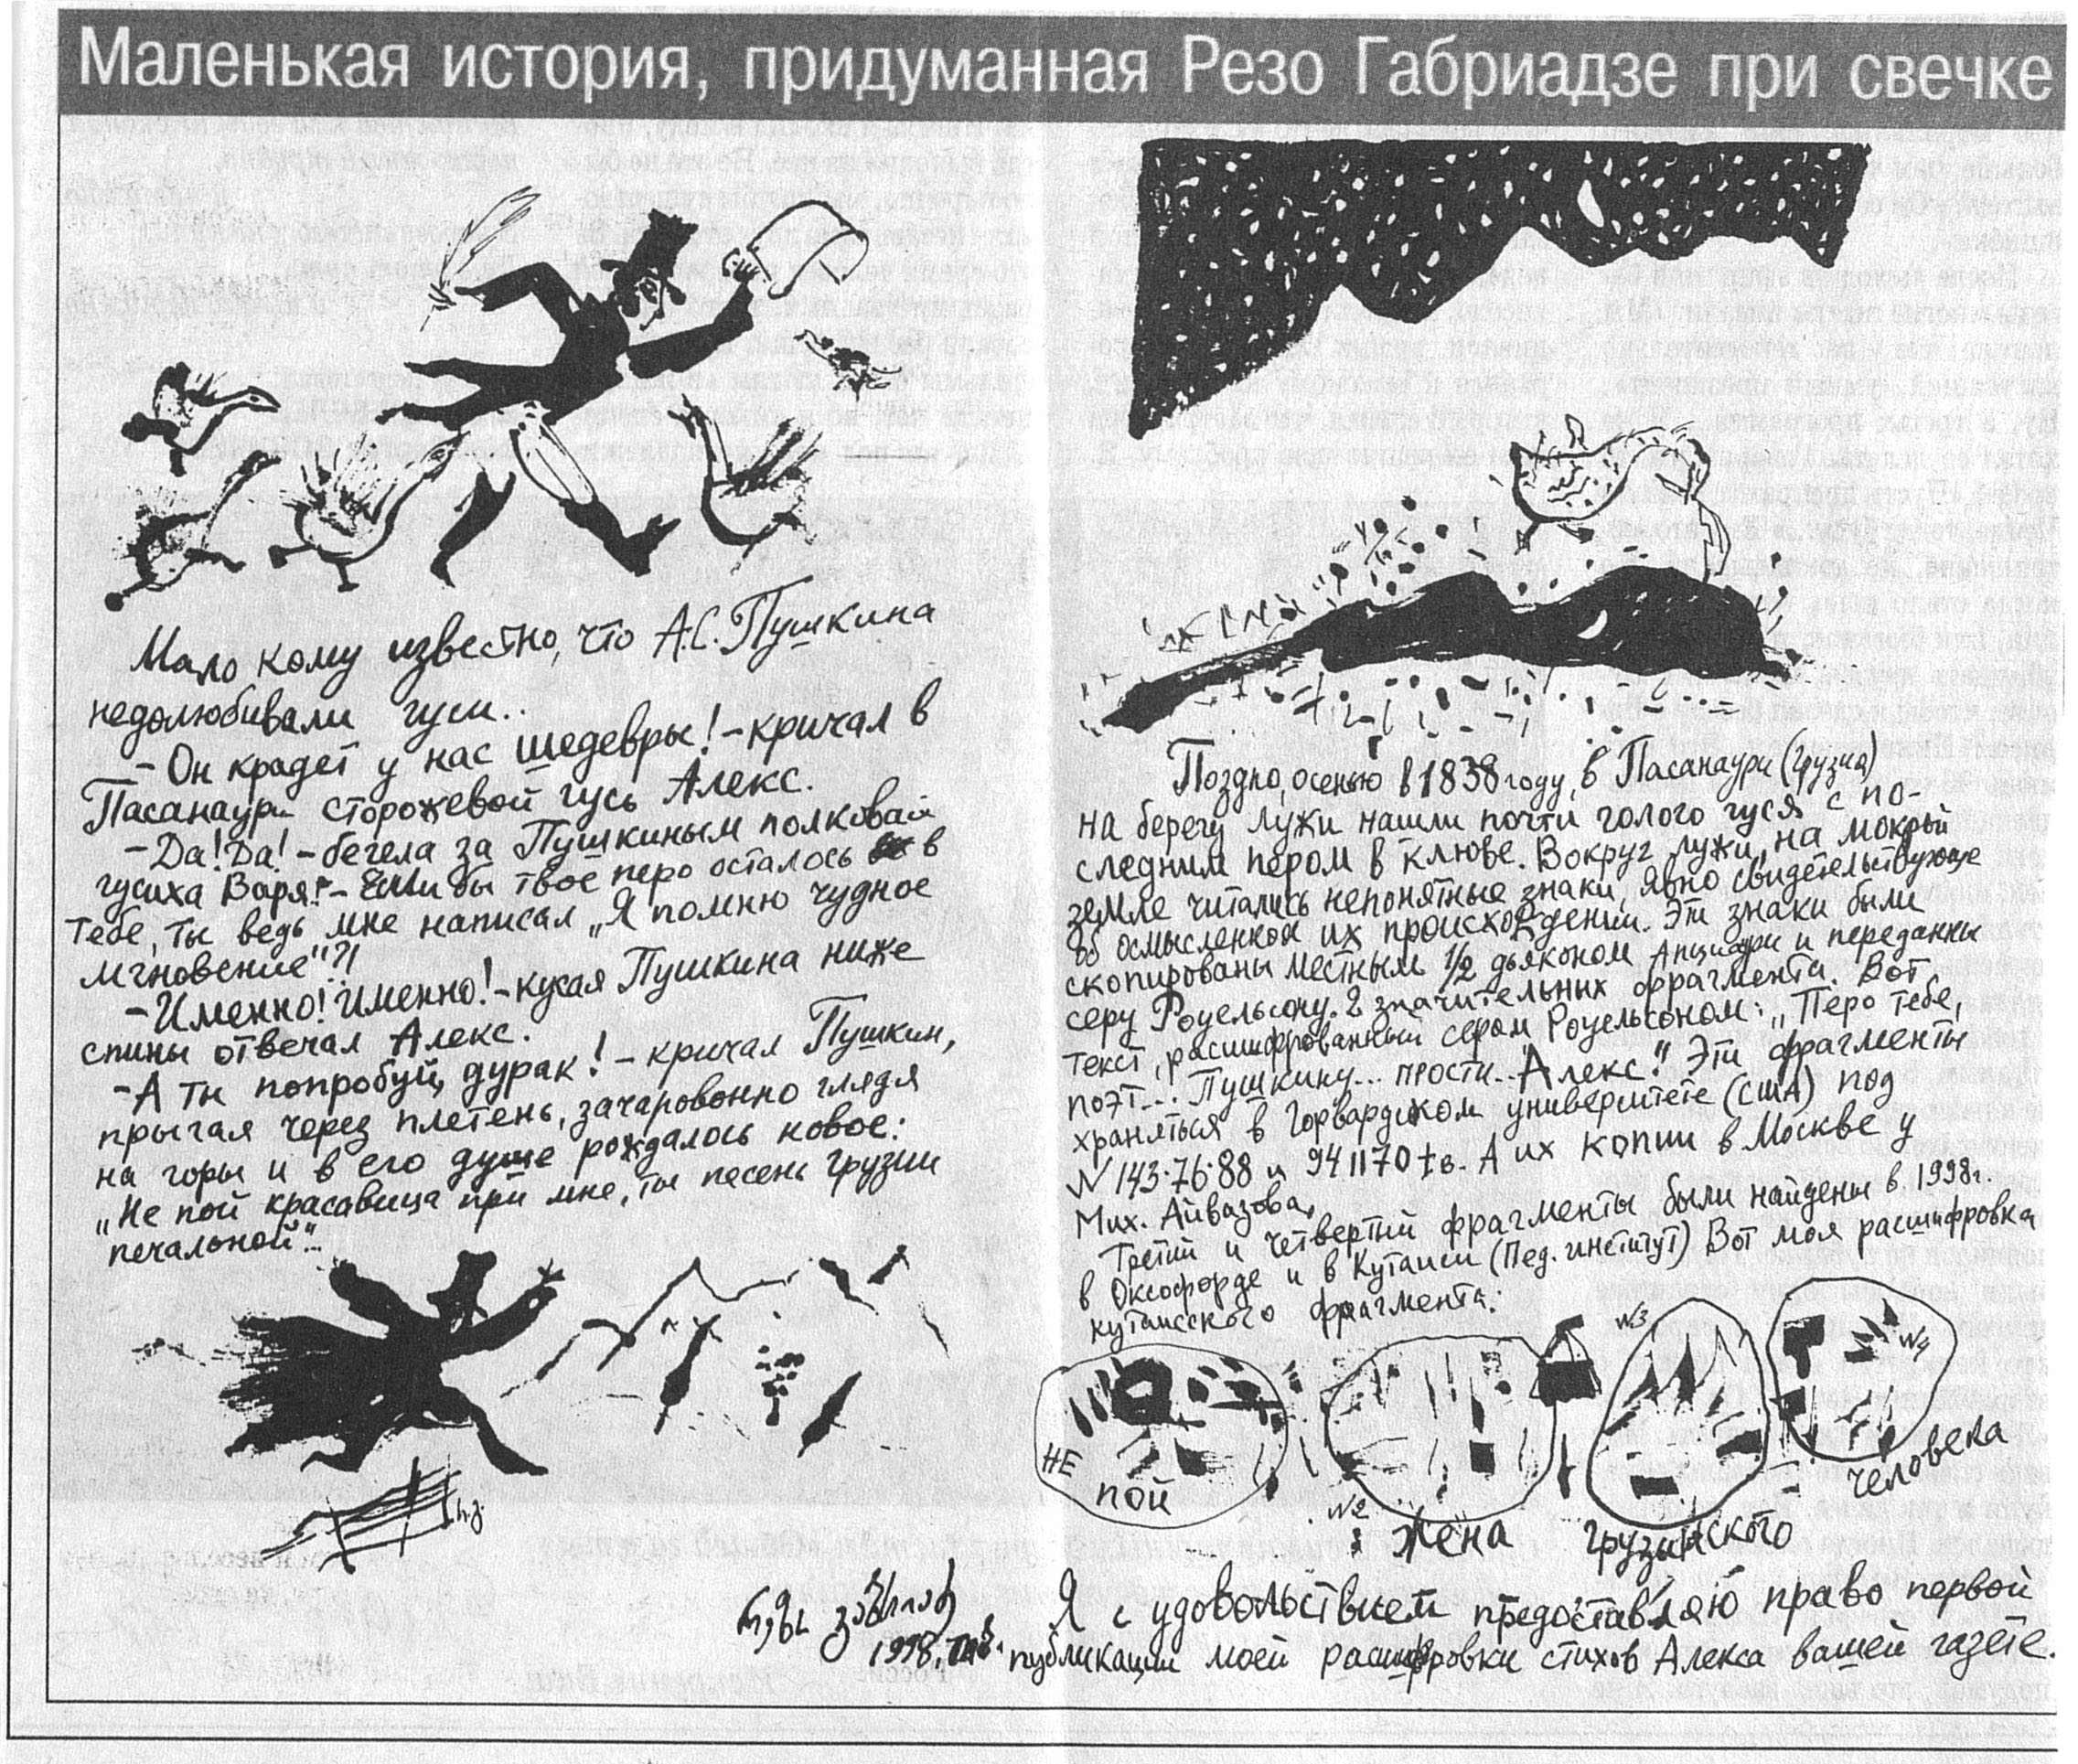 Маленькая история, придуманная Резо Габриадзе при свечке
Мало кому известно, что А.С. Пушкина
недолюбивали гуси..
- Он крадет у нас шедевры! - кричал в
Пасанаури сторожевой гусь Алекс.
- Да! Да! - бегела за Пушкиным полковай
гусиха Варя! - Если бы твое перо осталось в
тебе, ты ведь мне написал „Я помню чудное
мгновение"?!
- Именно! Именно! - кусая Пушкина ниже
спины отвечал Алекс.
- А ты попробуй, дурак! - кричал Пушкин,
прыгая через плетень, зачаровонно глядя
на горы и в его душе рождалось новое:
„Не пой красавица при мне, ты песень грузии
печальной"..
1998,
Поздно, осенью в 1838 году, в Пасанаури (Грузиа)
на берегу лужи нашли почти голого гуся с по-
следним пером в клюве. Вокруг лужи, на мокрый
земле читались непонятные знаки, явно свидетельствующе
об осмысленной их происхождении. Эти знаки были
скопированы местным 1/2 дьяконом Апциаури и переданны
серу Роуельсону. 2 значительных фрагмента. Вот
текст, расшифрованный сером Роуельсоном: „Перо тебе,
поэт... Пушкину... прости... Алекс." Эти фрагменты
храняться в Горвардском университете (США) под
№ 143·76·88 и 941170 тв. А их копии в Москве у
Мих. Айвазова.
Третий и четвертий фрагменты были найдены в 1998г.
в Оксфорде и в Кутаиси (Пед. институт) Вот моя расшифровка
кутаисского фрагмента:
НЕ
ПОЙ
№2
жена
№3
грузинского
№4
человека
Я с удовольствием предоставляю право первой
публикации моей расшифровки стихов Алекса вашей газете.